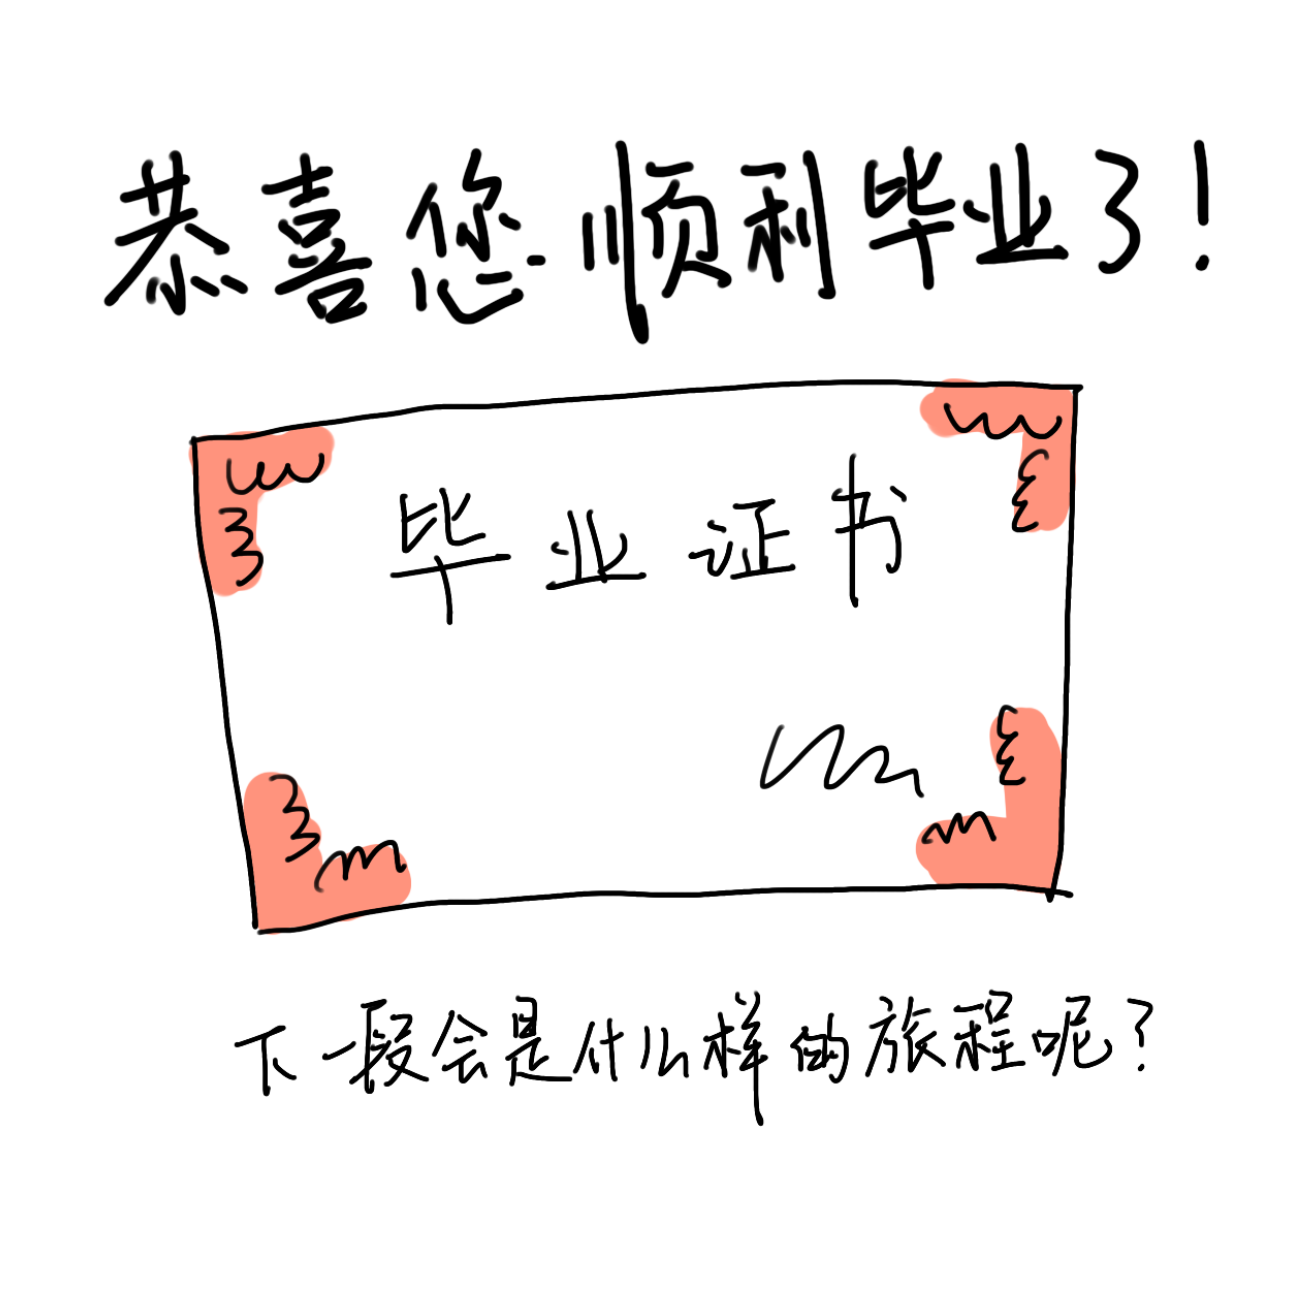 恭喜您顺利毕业了!
毕业证书
下一段会是什么样的旅程呢?